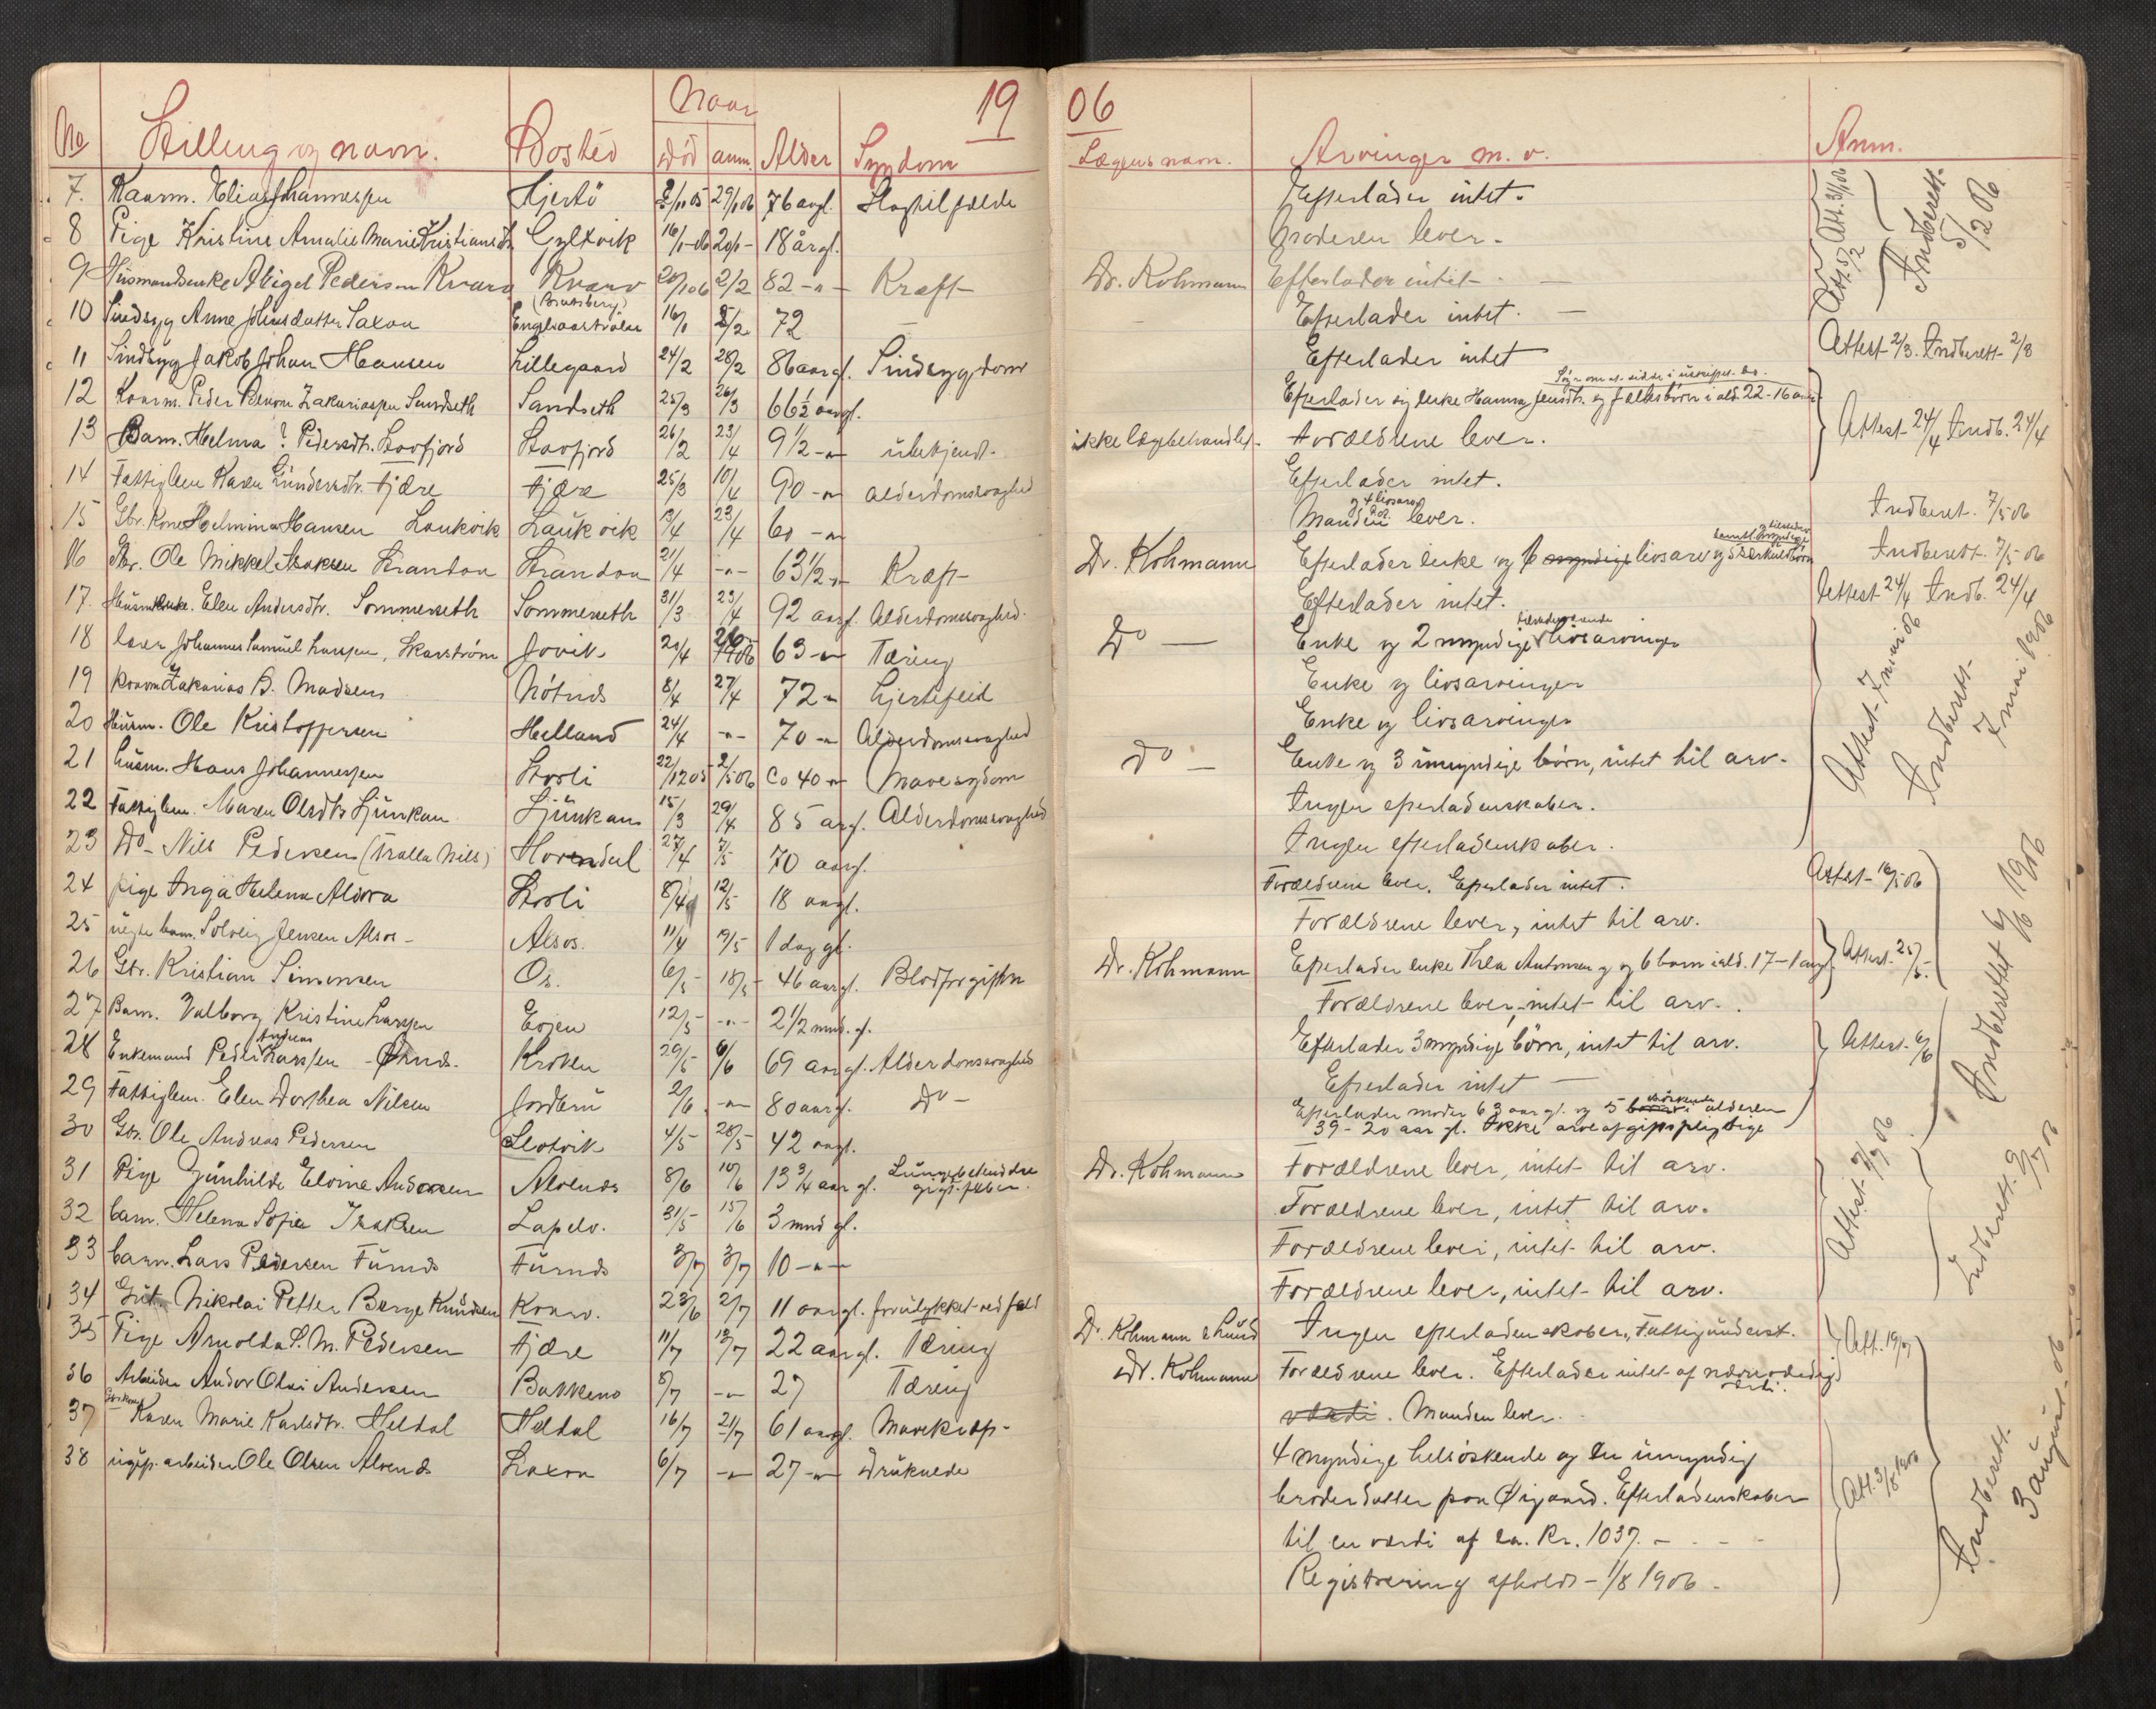 19 06
No Stilling og navn. Bosted Naar død anm. Alder Sygdom Lægens navn. Arvinger m. v. Anm.
7. Kaarm. Elias Johannessen Hjertö 2/11 05 29/1 06 76 aargl. Efterlader intet.
8 Pige Kristine Amalie Marie Kristiansdtr. Gyltvik 16/1-06 20/1- 18 årgl. Moderen lever.
9 Husmandsenke Abigel Pedersen Kvarv Kvarv 20/1 06 2/2 82 -"- Kræft Dr. Kohmann Efterlader intet -
10 Sindsyg Anne Johnsdatter Laxaa 16/1 5/2 72 Efterlader intet. —
Att. 5/2 Att. 31/1 06 Indberett. 5/2 06
11 Sindsyg Jakob Johan Hansen Lillegaard 24/2 28/2 86 aar gl. Sindsygdom Efterlader intet Attest 2/3. Indberett. 2/3
12 Kaarm. Peder Zakariassen Sandseth Sandseth 25/3 26/3 66 1/2 aargl. Efterlader sig enke Hanna Jensdtr. og fællesbörn i ald. 22-16 aar
13 Barn. Helma ? Pedersdtr. Storfjord Storfjord 26/2 23/4 9 1/2 -"- übekjendt. ikke lægbehandlet. Forældrene lever. Attest 24/4 Indb. 24/4
14 Fattiglem Karen Gundersdtr. Fjære Fjære 25/3 10/4 90 -"- alderdomssvaghed Efterlader intet.
15 Gbr. Kone Helmina Hansen Laukvik Laukvik 13/4 23/4 60 -"- Manden og 4 livsarv. lever. Indberet. 7/5 06
16 Gbr. Ole Mikkel Isaksen Strandaa Strandaa 21/4 -"- 63 1/2 -"- Kræft Dr. Kohmann Efterlader enke og 6 myndige livsarv og særkuldbörn Indberett. 7/5 06
17. Husmdsenke. Elen Andersdtr. Sommerseth Sommerseth 31/3 23/4 92 aargl. Alderdomssvaghed. Efterlader intet. Attest 24/4 Indb. 24/4
18 Johannes Samuel Larssen, Skarström Jovik 20/4 63 -"- Tæring Do — Enke og 2 myndige tilstedeværende livsarvinger
19 Kaarm Zakarias B. Madsen Nötnes 8/4 27/4 72 -"- Hjertefeil Enke og livsarvinger
20 Husm. Ole Kristoffersen Helland 24/4 -"- 70 -"- Alderdomssvaghed Enke og livsarvinger
21 Husm. Hans Johannessen Storli 22/12 05 2/5 06 Ca 40 -"- Mavesygdom Do — Enke og 3 umyndige börn, intet til arv.
22 Fattiglem. Maren Olsdtr. Ljunkan Ljunkan 15/3 29/4 85 argl. Alderdomssvaghed Ingen efterladenskaber.
Attest 7 mai 06 Indberett. 7 mai 1906
23 Do - Nils Pedersen (Tralla Nils) Horndal 27/4 7/5 70 aargl. Ingen efterladenskaber.
24 pige Inga Helena Aldora Storli 8/4 12/5 18 aargl. Forældrene lever. Efterlader intet. Attest 16/5 06
25 uegte barn. Solveig Jensen Alsos - Alsos. 11/4 19/5 1 dag gl. Forældrene lever, intet til arv.
26 Gbr. Kristian Simonsen Os. 6/5 - 18/5 - 46 aargl. Blodforgiftn Dr. Kohmann Efterlader enke Thea Antonsen og 6 barn i ald. 17-1 aar Attest. 25/5.
27 Barn. Valborg Kristine Larssen Eojen 12/5 -"- 2 1/2 mnd. gl. Forældrene lever, intet til arv.
28 Enkemand Peder Andreas Larssen - Kroken 29/5 6/6 69 aar gl. Alderdomssvaghed Efterlader 3 myndige börn, intet til arv. Attest. 6/6
29 Fattiglem. Elen Dorthea Nilsen Jordbru 2/6 -"- 80 aar gl. Do - Efterlader intet —
30 Gbr. Ole Andreas Pedersen Slotvik 4/5 28/5 42 aargl. Efterlader moder 63 aar gl. og 5 söskende i alderen
39-20 aar gl. Ikke arveafgiftspligtige
Indberettet 6/6 1906
31 Pige Gunhilde Elvine Andersen Alvenes 8/6 10/6 13 3/4 aar gl. Lungebetændelse gigtfeber. Dr. Kohmann Forældrene lever, intet til arv.
32 barn. Helena Sofie Isaksen Lapelv. 31/5 15/6 3 mnd gl. Forældrene lever, intet til arv.
33 barn. Lars Pedersen Furnes Furnes 3/7 3/7 10 -"- Forældrene lever, intet til arv.
34 Gut. Nikolai Petter Berge Knudsen Kvarv. 23/6 2/7 11 aargl. forulykket ved fald Forældrene lever, intet til arv.
Attest 9/7 06 Indberett. 9/7 06
35 Pige Arnolda S. M. Pedersen Fjære 11/7 13/7 22 aar gl. Tæring Dr. Kohmann & Lund Ingen efterladenskaber, Fattigunderst. Att. 19/7
36 Arbeider Andor Olai Andersen Bakkemo 8/7 -"- 27 Tæring Dr. Kohmann Forældrene lever. Efterlader intet af nævneværdig
værdi.
37 Karen Marie Karlsdtr. Heldal Heldal 16/7 21/7 61 aargl. Mavekræft - værdi. Manden lever.
38 ugift arbeider Ole Olsen Alvenes Laxaa 6/7 -"- 27 -"- Druknede 4 myndige helsöskende og en umyndig
broderdatter paa Öigaard. Efterladenskaber
til en værdi af ca. Kr. 1037. -
Registrering afholdt - 1/8 1906 -
Att. 3/8 1906 Indberett. 3 august 06